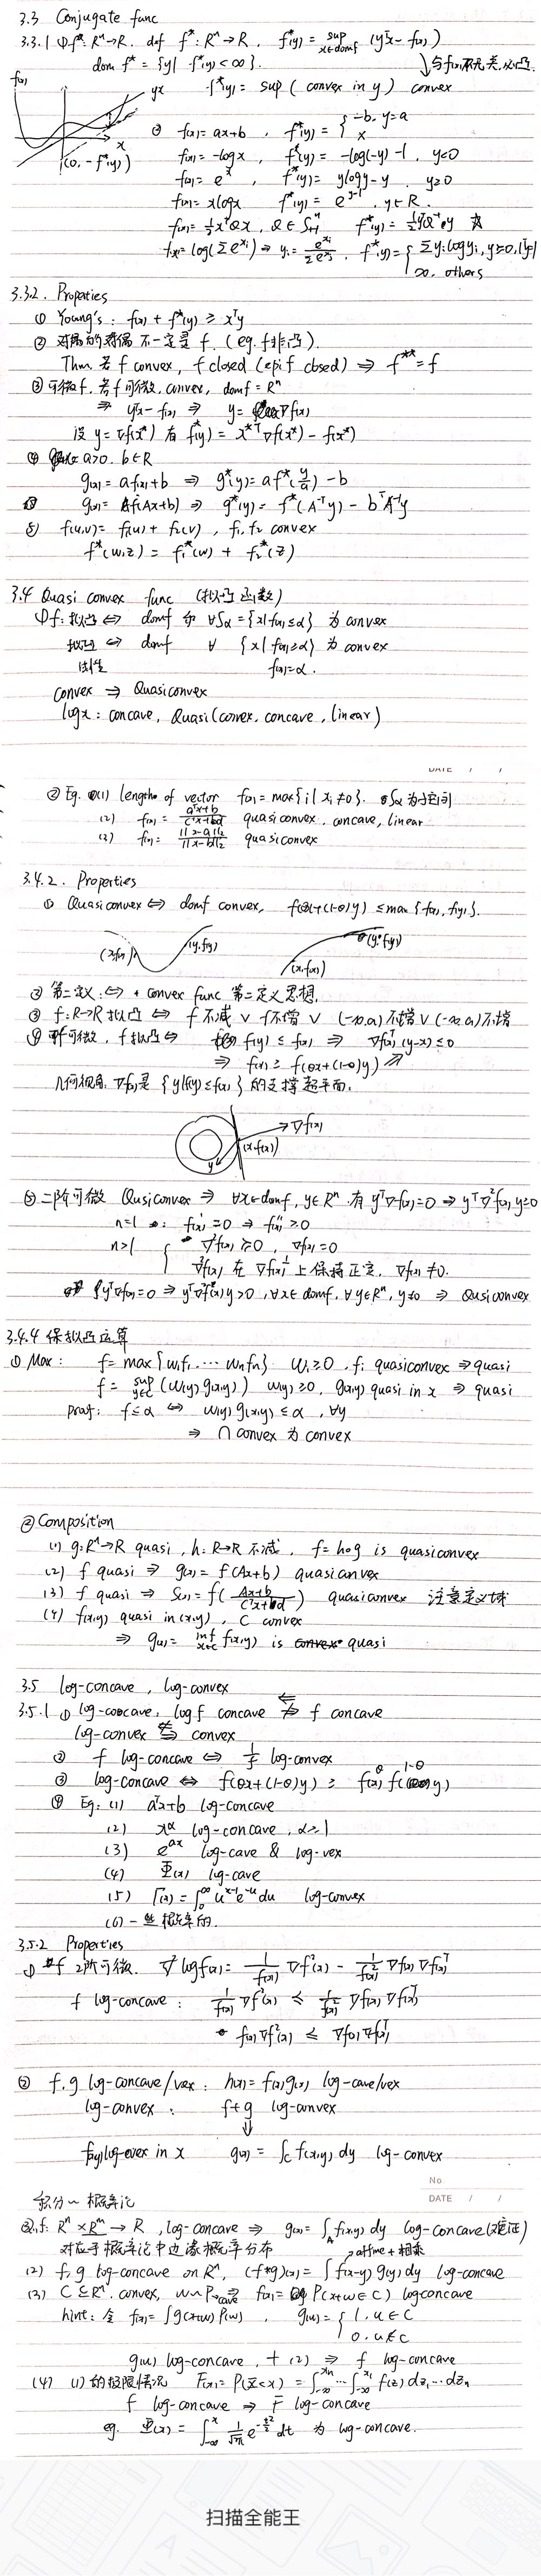 3.3 Conjugate func
3.3.1 ① f: Rⁿ→R. def f*: Rⁿ→R, f*(y) = sup_{x∈domf} (yᵀx - f(x))
dom f* = {y | f*(y) < ∞}. ↓与f(x)无关, 必凸.
f*(y) = sup (convex in y) convex
f(x) yx x (0, -f*(y))
② f(x) = ax+b, f*(y) = { -b, y=a
f(x) = -logx, f*(y) = -log(-y) - 1, y<0
f(x) = eˣ, f*(y) = ylogy - y, y≥0
f(x) = xlogx f*(y) = e^{y-1}, y∈R.
f(x) = ½xᵀQx, Q∈S₊₊ⁿ f*(y) = ½yᵀQ⁻¹y
f(x) = log(Σe^{xi}) ⇒ yi = e^{xi}/Σe^{xj}, f*(y) = { Σyi logyi, y≥0, 1ᵀy=1
∞, others
3.3.2. Properties
① Young's: f(x) + f*(y) ≥ xᵀy
② 对偶的对偶不一定是 f. (eg. f非凸).
Thm. 若 f convex, f closed (epi f closed) ⇒ f** = f
③ 可微f. 若f可微, convex, domf = Rⁿ
⇒ yᵀx - f(x) ⇒ y = ∇f(x)
设 y = ∇f(x*) 有 f*(y) = x*ᵀ∇f(x*) - f(x*)
④ a>0. b∈R
g(x) = af(x)+b ⇒ g*(y) = af*(y/a) - b
g(x) = f(Ax+b) ⇒ g*(y) = f*(A⁻ᵀy) - bᵀA⁻ᵀy
⑤ f(u,v) = f₁(u) + f₂(v), f₁, f₂ convex
f*(w,z) = f₁*(w) + f₂*(z)
3.4 Quasi convex func (拟凸函数)
① f: 拟凸 ⇔ domf 和 ∀Sα = {x | f(x) ≤ α} 为 convex
拟凹 ⇔ domf ∀ {x | f(x) ≥ α} 为 convex
线性 f(x) = α.
convex ⇒ Quasiconvex
logx: concave, Quasi (convex, concave, linear)
DATE / /
② Eg. (1) lengths of vector f(x) = max{i | xi ≠ 0}. Sα 为子空间
(2) f(x) = aᵀx+b / cᵀx+d quasiconvex, concave, linear
(3) f(x) = ‖x-a‖₂ / ‖x-b‖₂ quasiconvex
3.4.2. Properties
① Quasiconvex ⇔ domf convex, f(θx+(1-θ)y) ≤ max{f(x), f(y)}.
(x,f(x)) (y,f(y)) (x,f(x)) (y,f(y))
② 第二定义: ⇔ + convex func 第二定义思想.
③ f: R→R 拟凸 ⇔ f 不减 ∨ f不增 ∨ (-∞,a)不增 ∨ (-∞,a)不增
④ 可微, f拟凸 ⇔ f(y) ≤ f(x) ⇒ ∇f(x)ᵀ(y-x) ≤ 0
⇒ f(x) ≥ f(θx+(1-θ)y)
几何视角, ∇f(x)是 {y|f(y)≤f(x)} 的支撑超平面.
∇f(x) (x,f(x)) y
⑤ 二阶可微 Qusiconvex ⇒ ∀x∈domf, y∈Rⁿ. 有 yᵀ∇f(x)=0 ⇒ yᵀ∇²f(x)y≥0
n=1: f'(x)=0 ⇒ f''(x) ≥0
n>1 { ∇²f(x) ≥0, ∇f(x)=0
∇²f(x) 在 ∇f(x)⊥ 上保持正定, ∇f(x)≠0.
yᵀ∇f(x)=0 ⇒ yᵀ∇²f(x)y>0, ∀x∈domf, ∀y∈Rⁿ, y≠0 ⇒ Qusiconvex
3.4.4 保拟凸运算
① Max: f = max{w₁f₁, … wₙfₙ} wᵢ≥0. fᵢ quasiconvex ⇒quasi
f = sup_{y∈C} (w(y)g(x,y)) w(y)≥0, g(x,y) quasi in x ⇒ quasi
proof: f≤α ⇔ w(y)g(x,y) ≤α, ∀y
⇒ ∩ convex 为 convex
② Composition
(1) g: Rⁿ→R quasi, h: R→R 不减, f = h∘g is quasiconvex
(2) f quasi ⇒ g(x) = f(Ax+b) quasiconvex
(3) f quasi ⇒ g(x) = f(Ax+b / cᵀx+d) quasiconvex 注意定义域
(4) f(x,y) quasi in (x,y), C convex
⇒ g(x) = inf f(x,y) is quasi
3.5 log-concave, log-convex
3.5.1 ① log-concave. logf concave f concave
log-convex convex
② f log-concave ⇔ 1/f log-convex
③ log-concave ⇔ f(θx+(1-θ)y) ≥ f(x)^θ f(y)^{1-θ}
④ Eg: (1) aᵀx+b log-concave
(2) x^α log-concave, α≥1
(3) e^{ax} log-cave & log-vex
(4) Φ(x) log-cave
(5) Γ(x) = ∫₀^∞ u^{x-1}e^{-u}du log-convex
(6) 一些概率的.
3.5.2 Properties
① f 2阶可微. ∇²logf(x) = 1/f(x) ∇²f(x) - 1/f(x)² ∇f(x)∇f(x)ᵀ
f log-concave: 1/f(x) ∇²f(x) ≤ 1/f(x)² ∇f(x)∇f(x)ᵀ
f(x)∇²f(x) ≤ ∇f(x)∇f(x)ᵀ
② f, g log-concave/vex: h(x) = f(x)g(x) log-cave/vex
log-convex: f+g log-convex
↓
f(x,y) log-cvex in x g(x) = ∫_C f(x,y)dy log-convex
No.
DATE / /
积分~概率论
③ f: Rⁿ×Rᵐ→R, log-concave ⇒ g(x) = ∫_A f(x,y)dy log-concave (难证)
对应于概率论中边缘概率分布 affine + 相乘
(2) f, g log-concave on Rⁿ, (f*g)(x) = ∫f(x-y)g(y)dy log-concave
(3) C⊆Rⁿ. convex, w~P ⇒ f(x) = P(x+w∈C) logconcave
hint: 令 f(x) = ∫g(x+w)P(w), g(u) = { 1, u∈C
0, u∉C
g(u) log-concave, + (2) ⇒ f log-concave
(4) (1)的极限情况 F(x) = P(Z<x) = ∫_{-∞}^{xn} … ∫_{-∞}^{x1} f(z)dz₁…dzₙ
f log-concave ⇒ F log-concave
eg. Φ(x) = ∫_{-∞}^{x} 1/√π e^{-t²/2} dt 为 log-concave.
扫描全能王